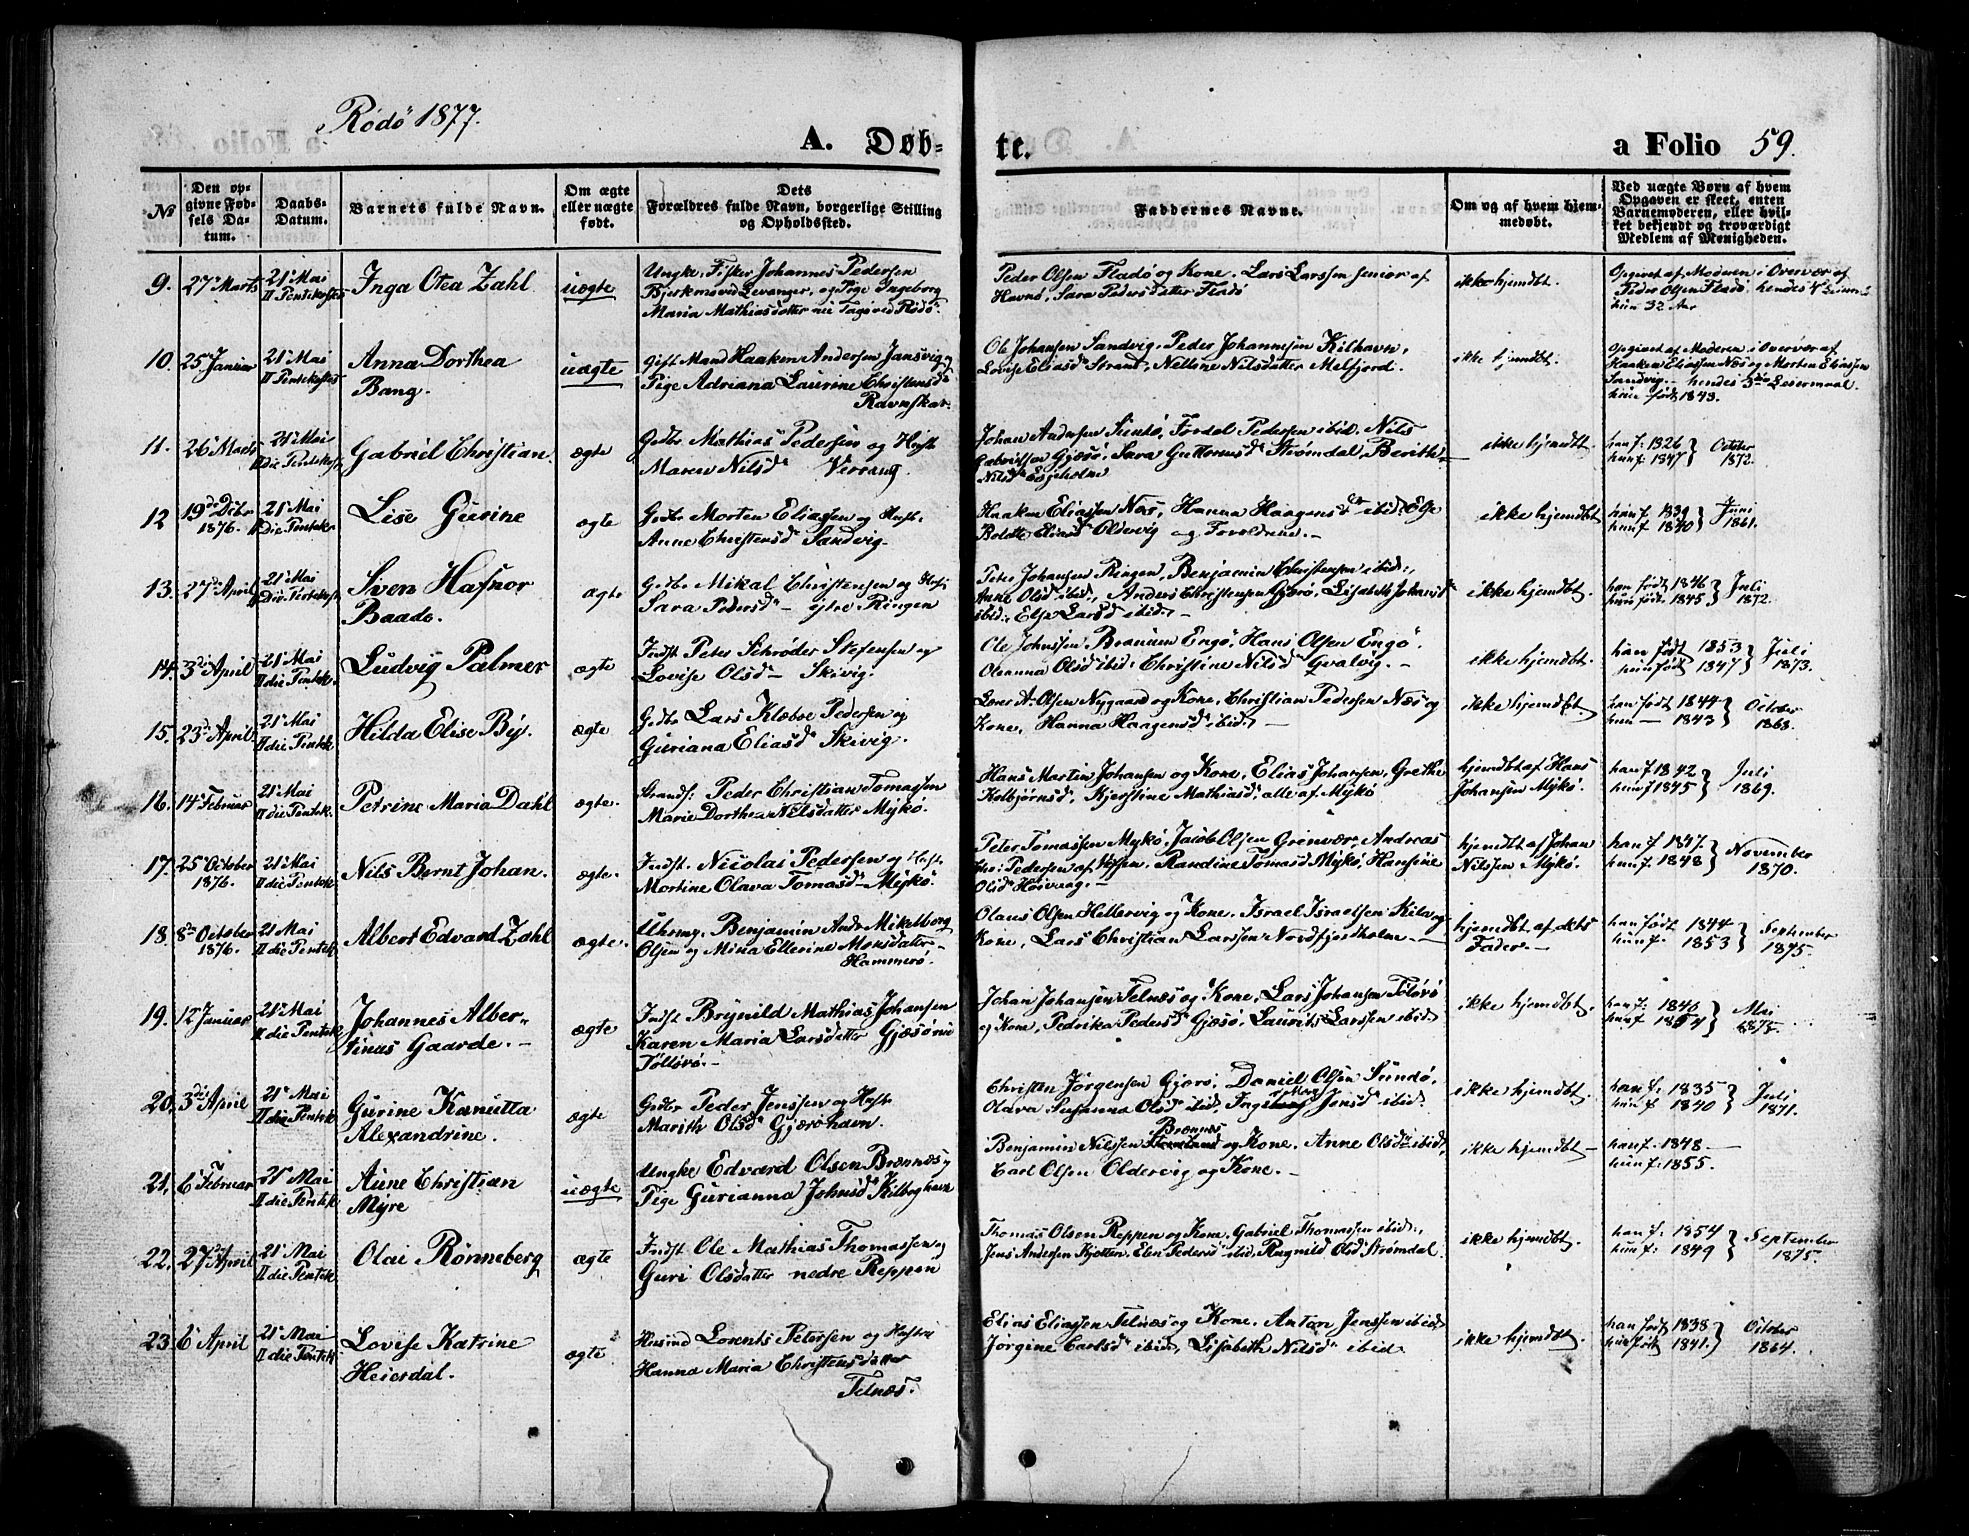 Rödö 1877.
A. Døb-
te.
a Folio 59.
№
Den op-
givne Fød-
sels Da-
tum.
Daabs-
Datum.
Barnets fulde Navn.
Om ægte
eller uægte
født.
Dets
Forældres fulde Navn, borgerlige Stilling
og Opholdssted.
Faddernes Navne.
Om og af hvem hjem-
medøbt.
Ved uægte Børn af hvem
Opgaven er skeet, enten
Barnemoderen, eller hvil-
ket bekjendt og troværdigt
Medlem af Menigheden.
9. 27 Marts
21 Mai
II Pentekostes
Inga Otea Zahl
uægte
Ungk. Fisker Johannes Pedersen
Bjerkenes ved Levanger, og Pige Ingeborg
Maria Mathiasdatter ved Rødø.
Peder Olsen Fladö og Kone. Lars Larssen senior af
Havnö, Sara Pedersdatter Fladö
ikke hjemdbt.
Opgivet af Moderen i Overvær af
Peder Olsen Fladö. hendes
hun 32 Aar
10. 25 Januar
21 Mai
II Pentekostes
Anna Dorthea
Bang.
uægte
Gift Mand Haaken Andersen Jansvig og
Pige Adriana Laurine Christensd
Ravnskar.
Ole Johansen Sandvig. Peder Johannesen Kilhavn,
Lovise Eliasd Strant, Nelline Nilsdatter Melfjord.
ikke hjemdbt.
Opgivet af Moderen i Overvær af
Haaken Eliassen Næs og Morten Eliassen
Sandvig. hendes 3die Leiermaal
hun født 1843.
11. 26 Marts
21 Mai
II die Pentekost
Gabriel Christian
ægte
Gdbr Mathias Pedersen og Hust
Maren Nilsd Verrang
Johan Andersen Sundö, Fordel Pedersen ibid. Nils
Gabrielsen Gjærö, Sara Guttormsd Strömdal, Berith
Nilsd
ikke hjemdbt
han f: 1826
hun f: 1847
October
1872.
12 19de Dcbr
1876.
21 Mai
II die Pentek.
Lise Gurine
ægte
Gdbr Morten Eliassen og Hust.
Anne Christensd Sandvig
Haaken Eliassen Næs, Hanna Haagensd ibid. Else
Bolette Eliasd Oldervig og Forældrene.
ikke hjemdbt
han f 1839
hun f 1840
Juni
1861.
13. 27de April
21 Mai
II die Pentekost
Sven Hafnor
Baade.
ægte
Gdbr Mikal Christensen og Hust
Sara Pedersd ytre Ringen
Peter Johansen Ringen, Benjamin Christensen ibid.,
Anne Olsd ibid., Anders Christensen Gjærö, Lisabeth Johansd
ibid., Else Larsd ibid.
ikke hjemdbt.
han født 1846
hun født 1845
Juli
1872.
14. 3die April
21 Mai
II die Pentek.
Ludvig Palmer
ægte
Indst Peter Schröder Stefensen og
Lovise Olsd Skivig.
Ole Johnssen Brænnen Engö, Hans Olsen Engö
Oleanna Olsd ibid: Christine Nilsd Gvalvig.
ikke hjemdbt.
han født 1853
hun født 1847
Juli
1873.
15. 23de April
21 Mai
II die Pentek.
Hilda Elise By
ægte
Gdbr Lars Klæboe Pedersen og
Guriana Eliasd Skivig.
Olsen Nygaard og Kone, Christian Pedersen Næs og
Kone, Hanna Haagensd ibid.
ikke hjemdbt.
han født 1844
hun — 1843
October
1868.
16. 14 Februar
21 Mai
II die Pentek.
Petrine Maria Dahl
ægte.
Strands: Peder Christian Tomassen
Marie Dorthea Nilsdatter Mykö.
Hans Martin Johansen og Kone, Elias Johansen, Grethe
Kolbjörnsd, Kjerstine Mathiasd, alle af Mykö
hjemdbt af Hans
Johansen Mykö.
han f 1842
hun f 1845
Juli
1869.
17. 25 October
1876.
21 Mai
II die Pentek.
Nils Bernt Johan.
ægte.
Indst. Nicolai Pedersen og Hust
Mortine Olava Tomasd Mykö.
Peter Tomassen Mykö, Jacob Olsen Grönvær, Andreas
Chr: Pedersen af Randine Tomasd Mykö, Hansine
Olsd Höivaag.
hjemdbt af Johan
Nilssen Mykö.
han f 1847
hun f 1848
November
1870.
18. 8de October
1876.
21 Mai
II die Pentek.
Albert Edvard Zahl
ægte.
Uhrmg. Benjamin Andr Mikelborg
Olsen og Mina Ellerine Monsdater
Hammerö.
Olaus Olsen Hellervig og Kone. Israel Israelsen Kila og
Kone, Lars Christian Larssen Nordfjordholm
hjemdbt af dets
Fader.
han født 1844
hun f. 1853
September
1875.
19. 12 Januar
21 Mai
II die Pentek
Johannes Alber-
tinus Gaarde.
ægte
Indst Brynild Mathias Johansen
Karen Maria Larsdatter Gjæsöen i
Tollörö.
Johan Johansen Telnæs og Kone, Lars Johansen Tölörö
og Kone, Pedrika Pedersd Gjæsö, Laurits Larssen ibid
ikke hjemdbt.
han f: 1846
hun f. 1854
Mai
1873.
20. 3die April
21 Mai
II die Pentek
Gurine Kanutta
Alexandrine.
ægte
Gdbr Peder Jenssen og Hust
Marith Olsd Gjæröhavn.
Christen Jörgensen Gjærö, Daniel Olsen Sundö,
Olava Susanna Olsd ibid. Jensd ibid.
ikke hjemdbt.
han f: 1835
hun f 1840
Juli
1871.
21. 6 Februar
21 Mai
II die Pentek
Aune Christian
Myre
uægte
Ungk Edvard Olsen Brennæs og
Pige Gurianna Johnsd Kilboghavn
Brennæs
Benjamin Nilssen og Kone. Anne Olsd ibid,
Carl Olsen Oldervig og Kone.
ikke hjemdbt
han f: 1848
hun f: 1855.
22. 27de April
21 Mai
II die Pentek
Olai Rönneberg
ægte
Indst. Ole Mathias Thomassen og
Guri Olsdatter nedre Reppen
Thomas Olsen Reppen og Kone. Gabriel Thomassen ibid:,
Jens Andersen Kjotten. Elen Pedersd ibid. Ragnild Olsd Strømdal
ikke hjemdbt.
han f: 1854
hun f: 1849
September
1875.
23. 6 April
21 Mai
II die Pentek
Lovise Katrine
Heierdal.
ægte
Husmd Lorents Petersen og Hustru
Hanna Maria Christensdatter
Telnæs.
Elias Eliassen Telnæs og Kone. Anton Jenssen ibid
Jörgine Carlsd ibid, Lisabeth Nilsd ibid
ikke hjemdbt.
han født 1838
hun født 1841.
October
1864.